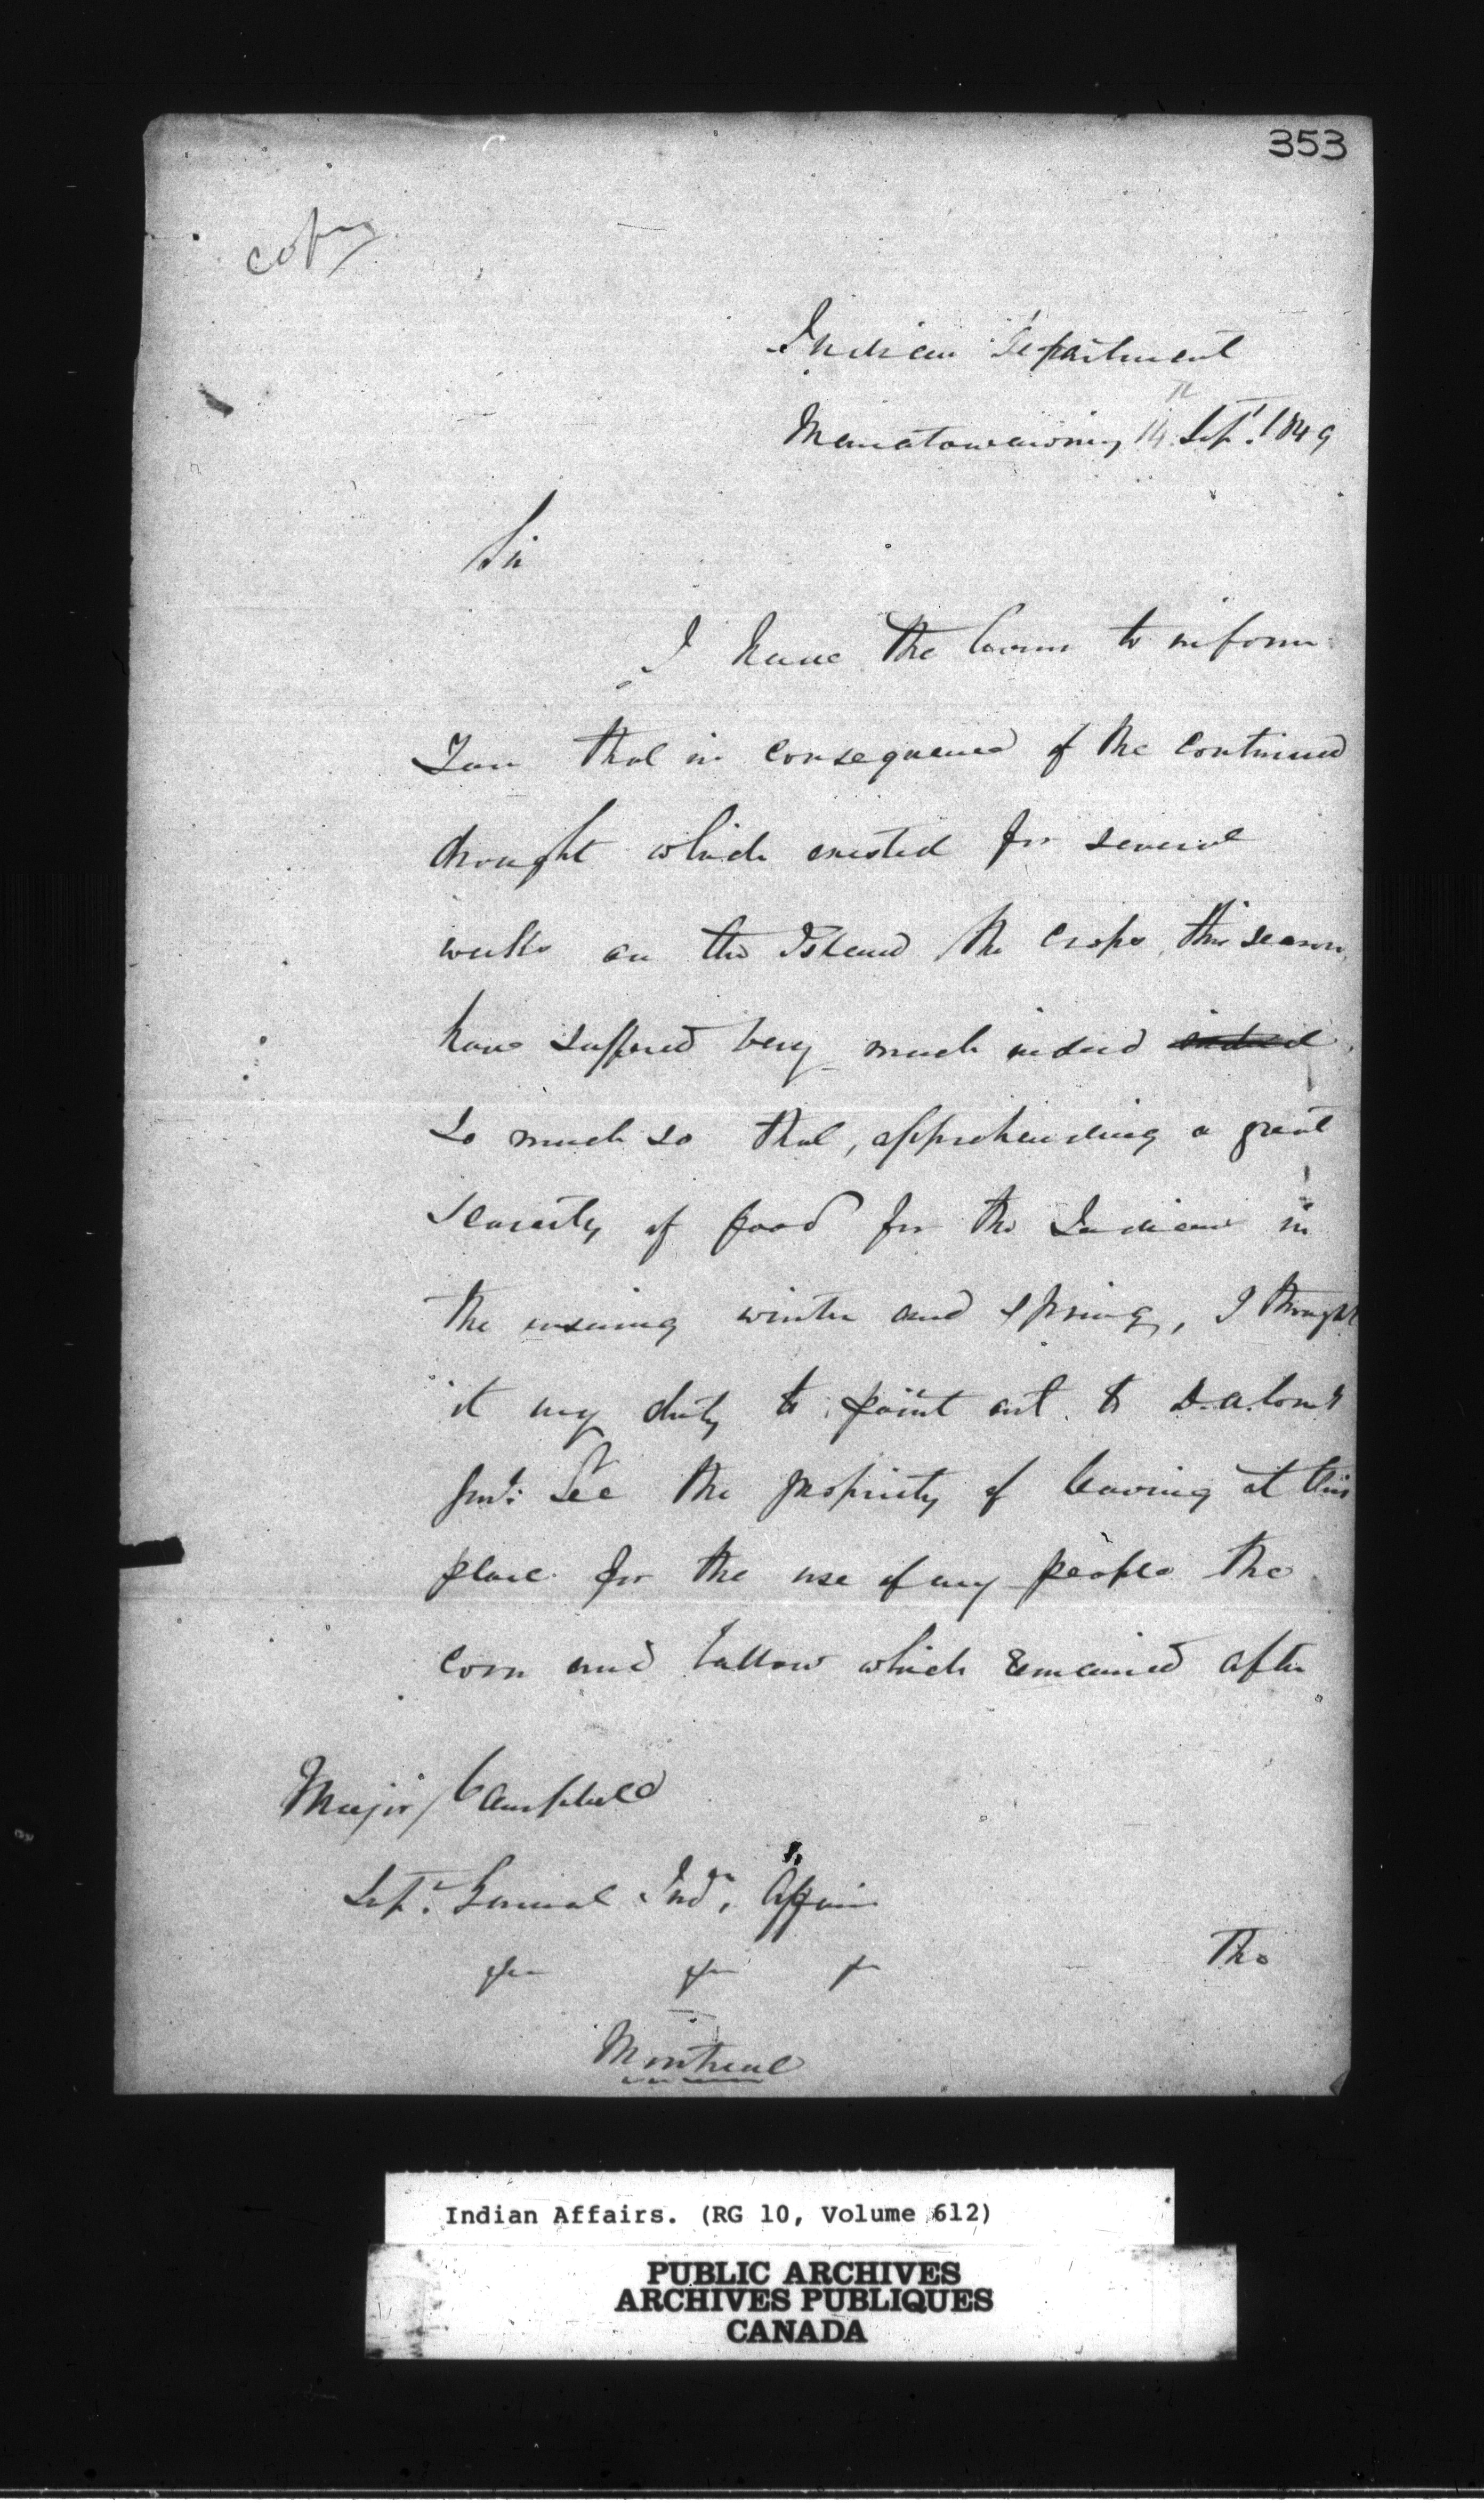 353
copy
Indian Department
Manatowawning 14th Sept. 1849
Sir
I have the honor to inform
You that in consequence of the continued
drought which existed for several
weeks on the Island the crops, this season,
have suffered very much indeed indeed
so much so that, apprehending a great
scarcity of food for the Indians in
the ensuing winter and spring, I thought
it my duty to point out to D. A. Com.y
Genl: Lee the propriety of leaving at this
place for the use of my people the
corn and tallow which remained after
Major Campbell
Supt. General Indn. Affairs
Montreal
The
Indian Affairs. (RG 10, Volume 612)
PUBLIC ARCHIVES
ARCHIVES PUBLIQUES
CANADA